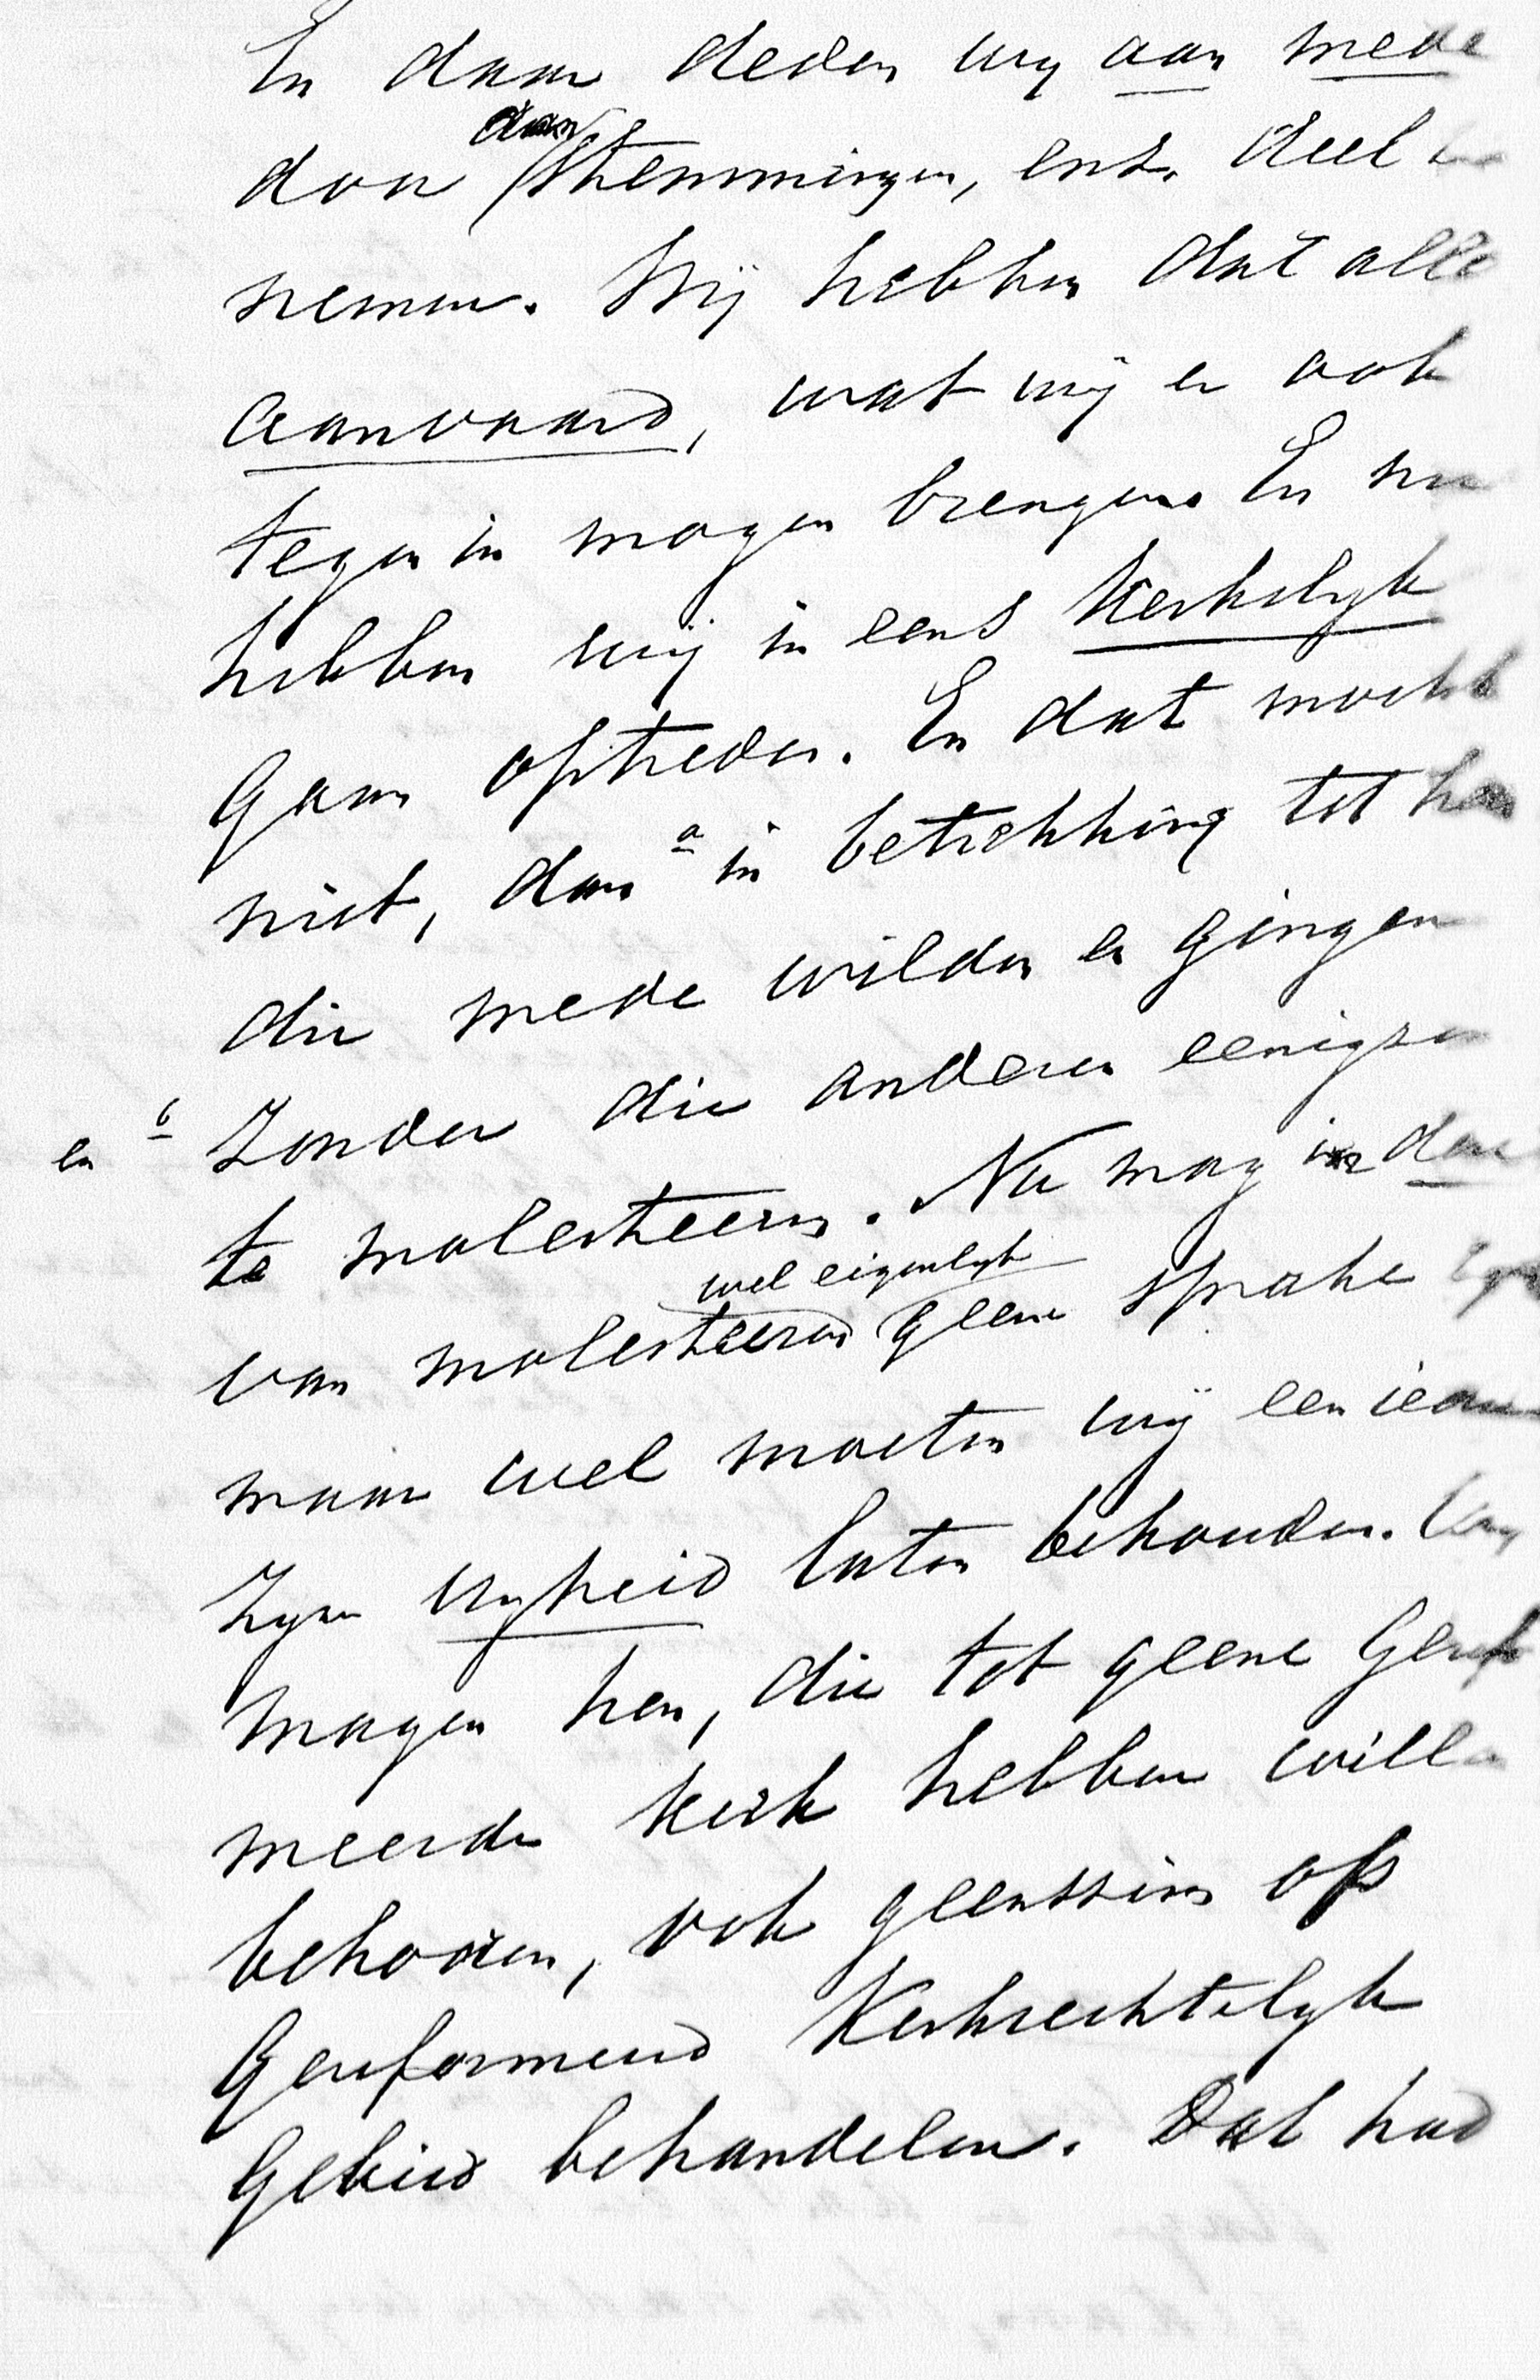 En daar deden wy aan mede
door aan stemmingen, enz. deel te
nemen. Wij hebben dat alles
aanvaard, wat wij er ook
tegen in mogen brengen. En nu
hebben wij in eens Kerkelyk
gaan optreden. En dat mocht
niet, dan a in betrekking tot hen
die mede wilden en gingen
en b zonder die anderen eenigszins
te molesteeren. Nu mag in den
van molesteeren wel eigenlyk geene sprake zyn
maar wel moeten wij een ieder
zyne vryheid laten behouden. Wy
mogen hen, die tot geene Gerefor
meerde Kerk hebben willen
behooren, ook geenszins op
Gereformeerd Kerkrechtelyk
Gebied behandelen. Dat had